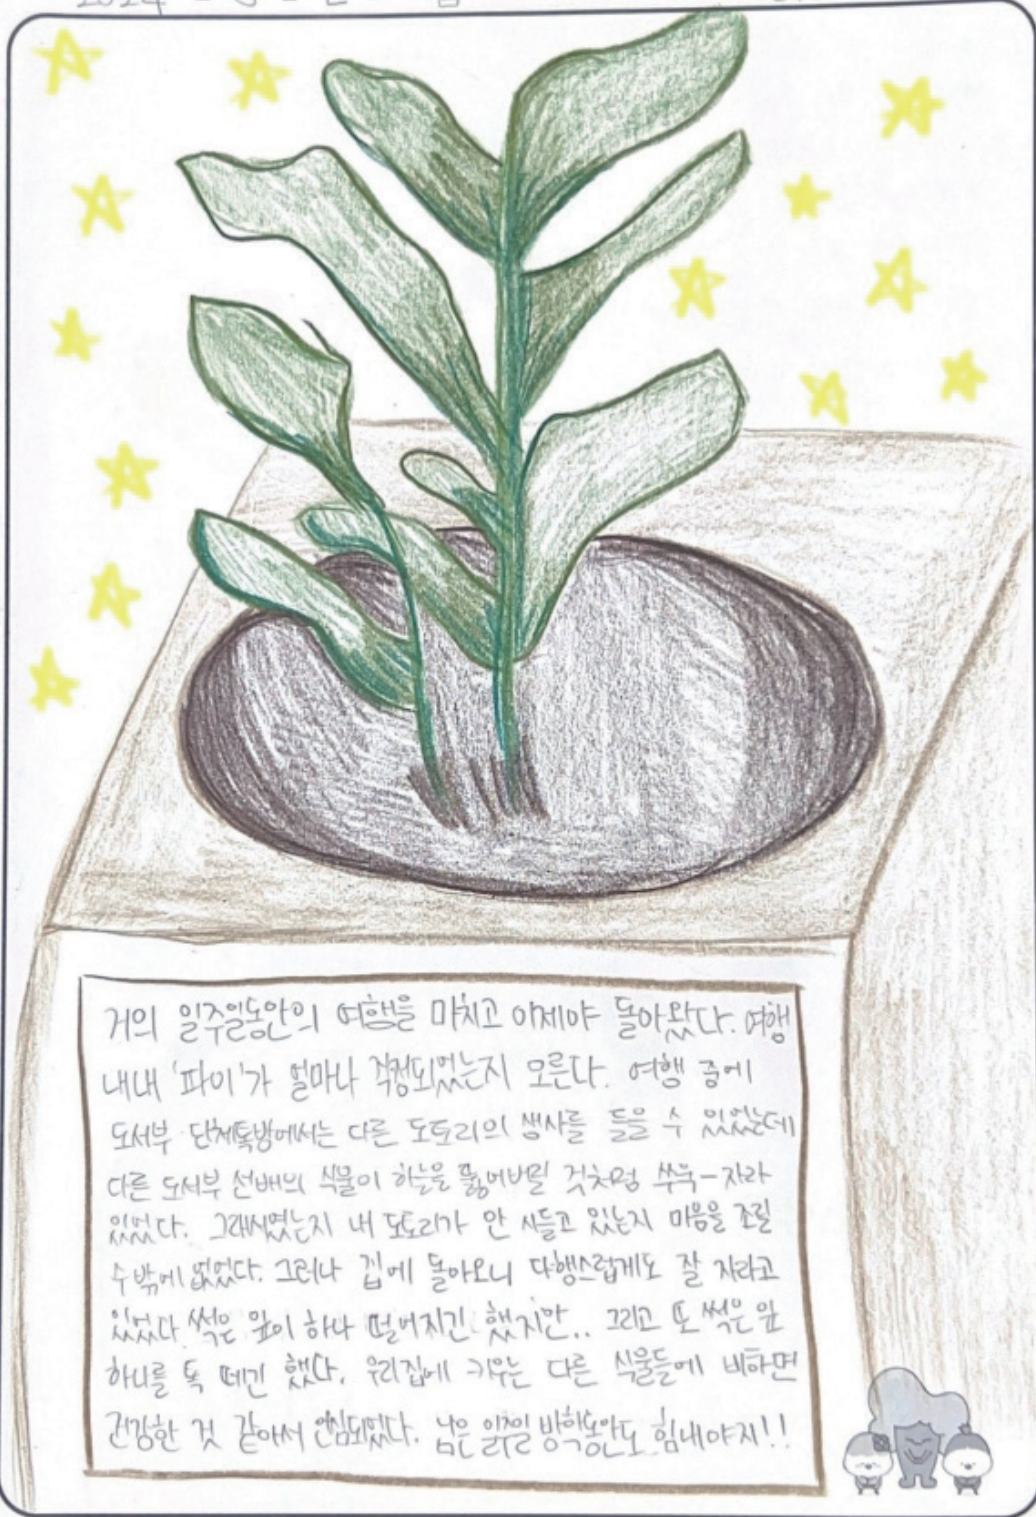 거의 일주일동안의 여행을 마치고 이제야 돌아왔다. 여행
내내 '파이'가 얼마나 걱정되었는지 모른다. 여행 중에
도서부 단체톡방에서는 다른 도토리의 생사를 들을 수 있었는데
다른 도서부 선배의 식물이 하늘을 뚫어버릴 것처럼 쑤욱-자라
있었다. 그래서였는지 내 도토리가 안 시들고 있는지 마음을 조릴
수밖에 없었다. 그러나 집에 돌아오니 다행스럽게도 잘 자라고
있었다 썩은 잎이 하나 떨어지긴 했지만.. 그리고 또 썩은 잎
하나를 톡 떼긴 했다. 우리집에 키우는 다른 식물들에 비하면
건강한 것 같아서 안심되었다. 남은 일주일 방학동안도 힘내야지!!